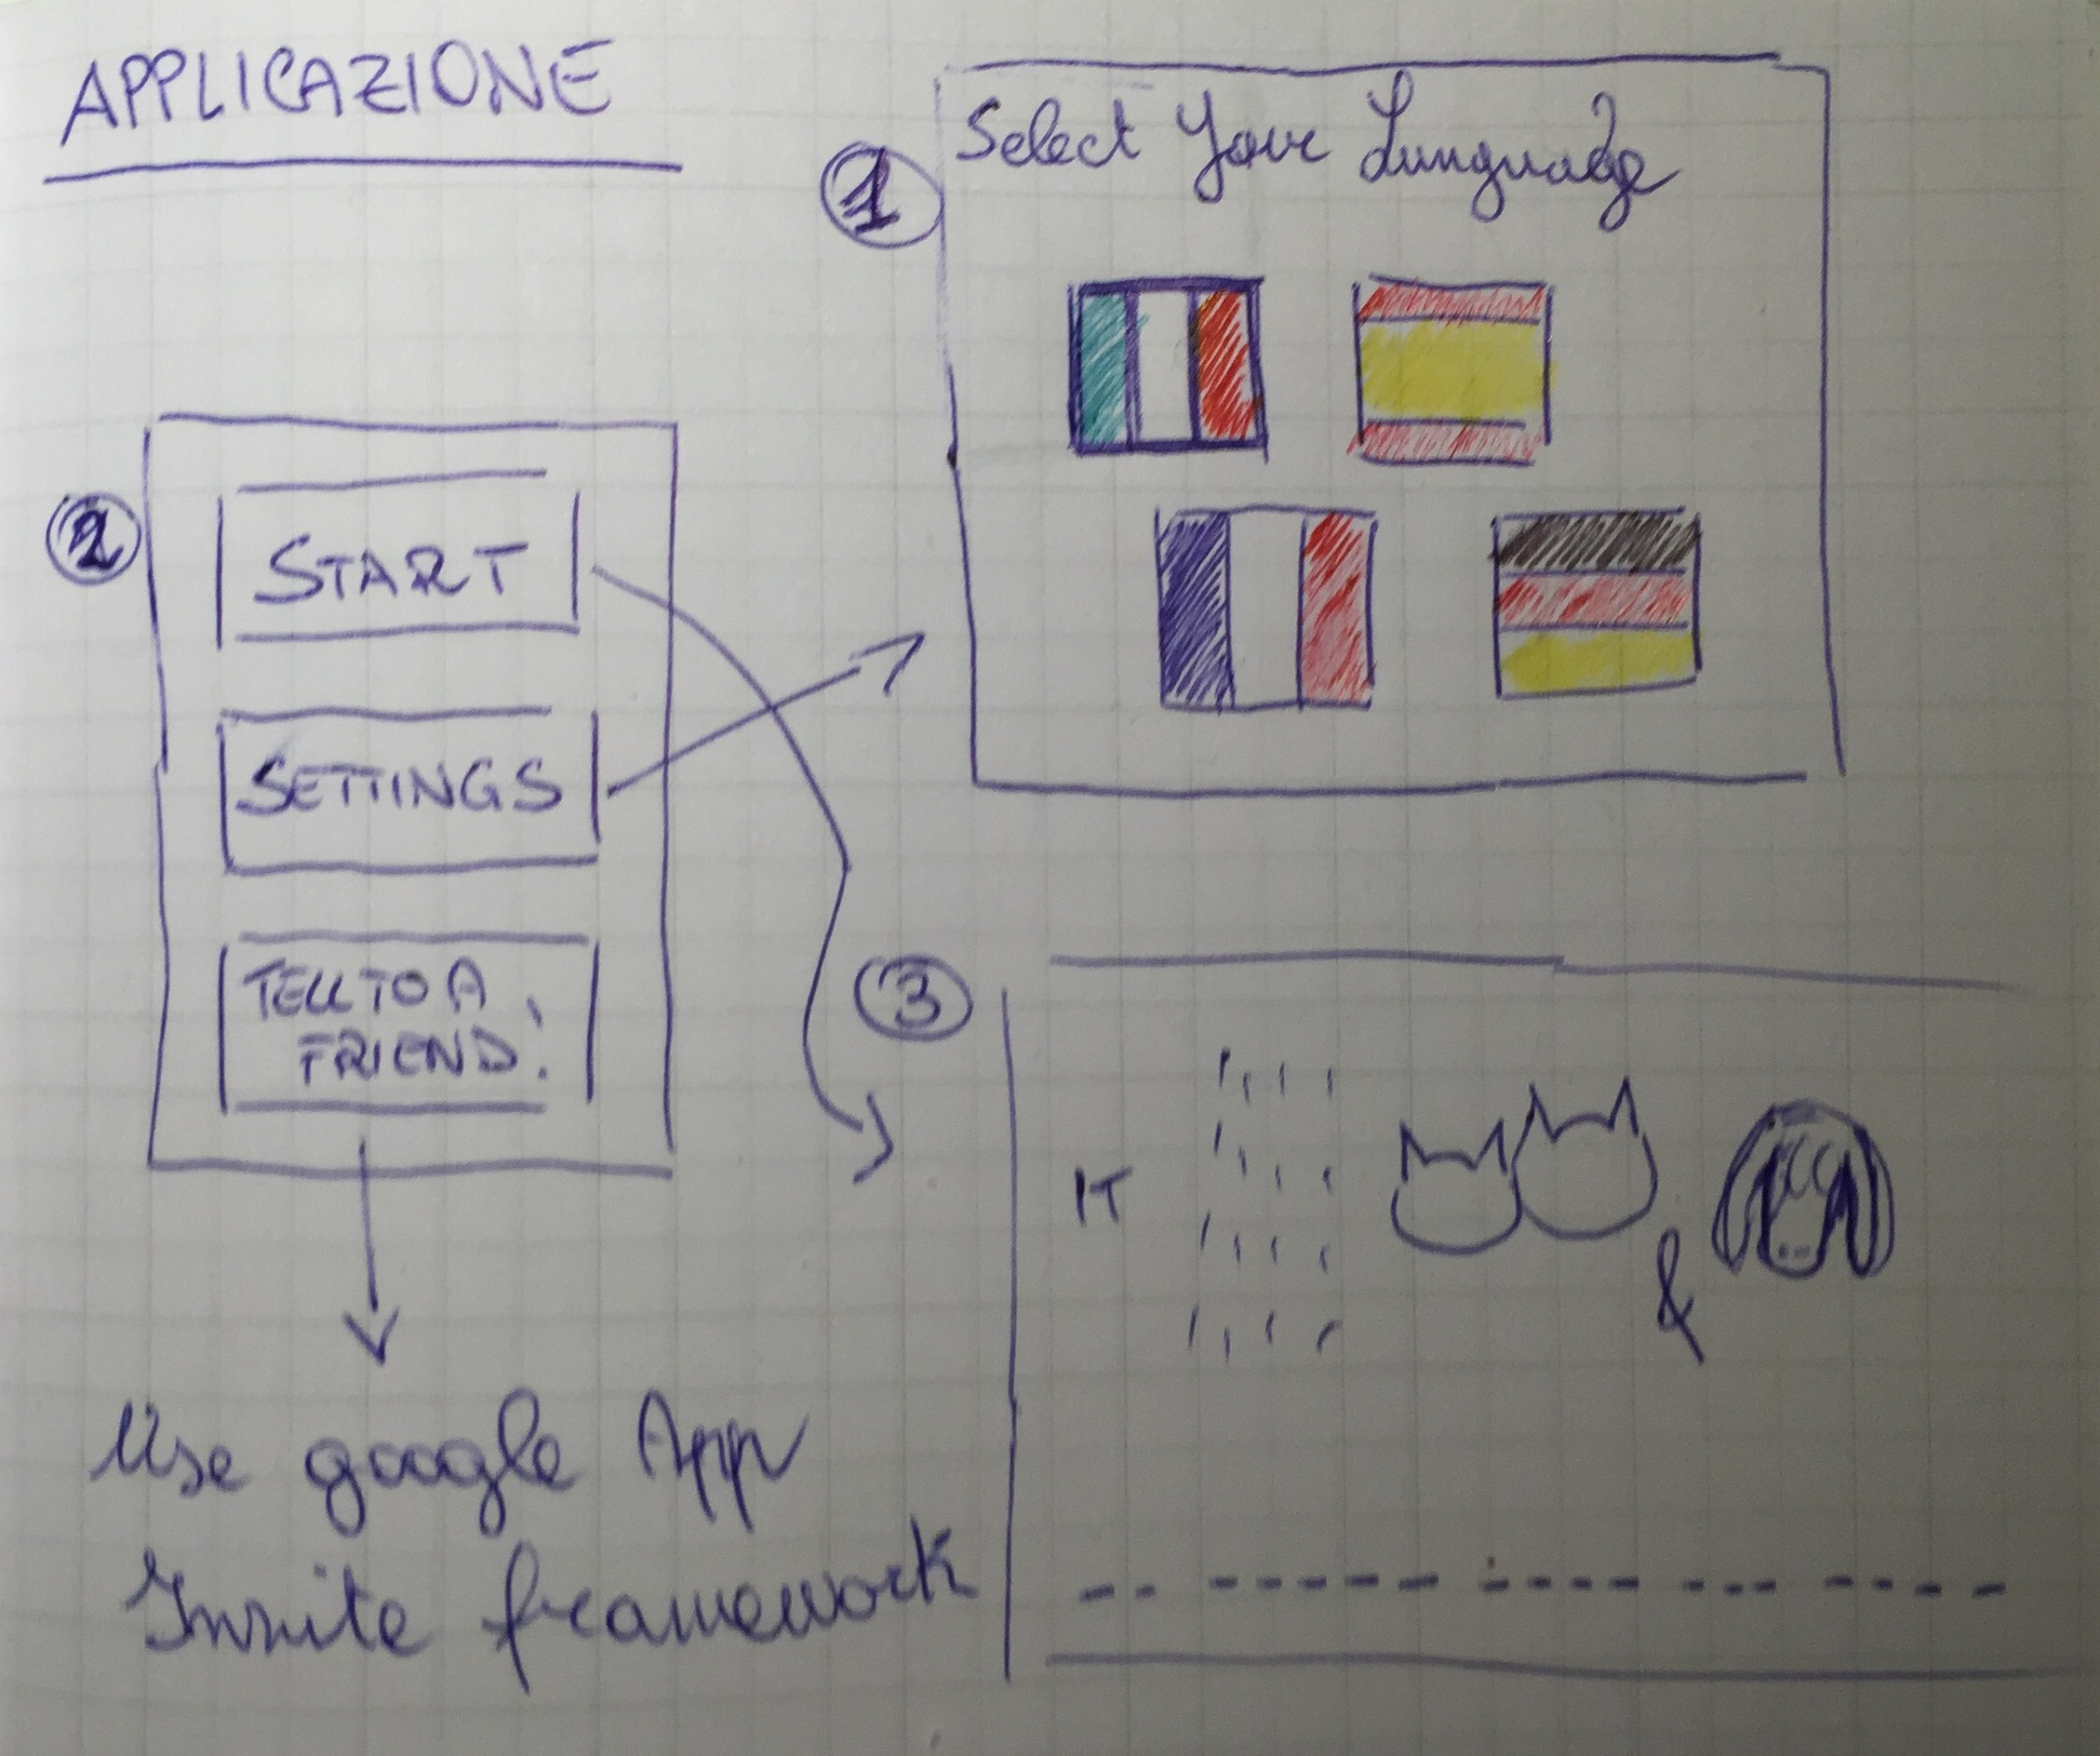 APPLICAZIONE
1
Select Your Lunguage
2
START
SETTINGS
TELL TO A
FRIEND!
Use google App
Invite framework
3
IT
&